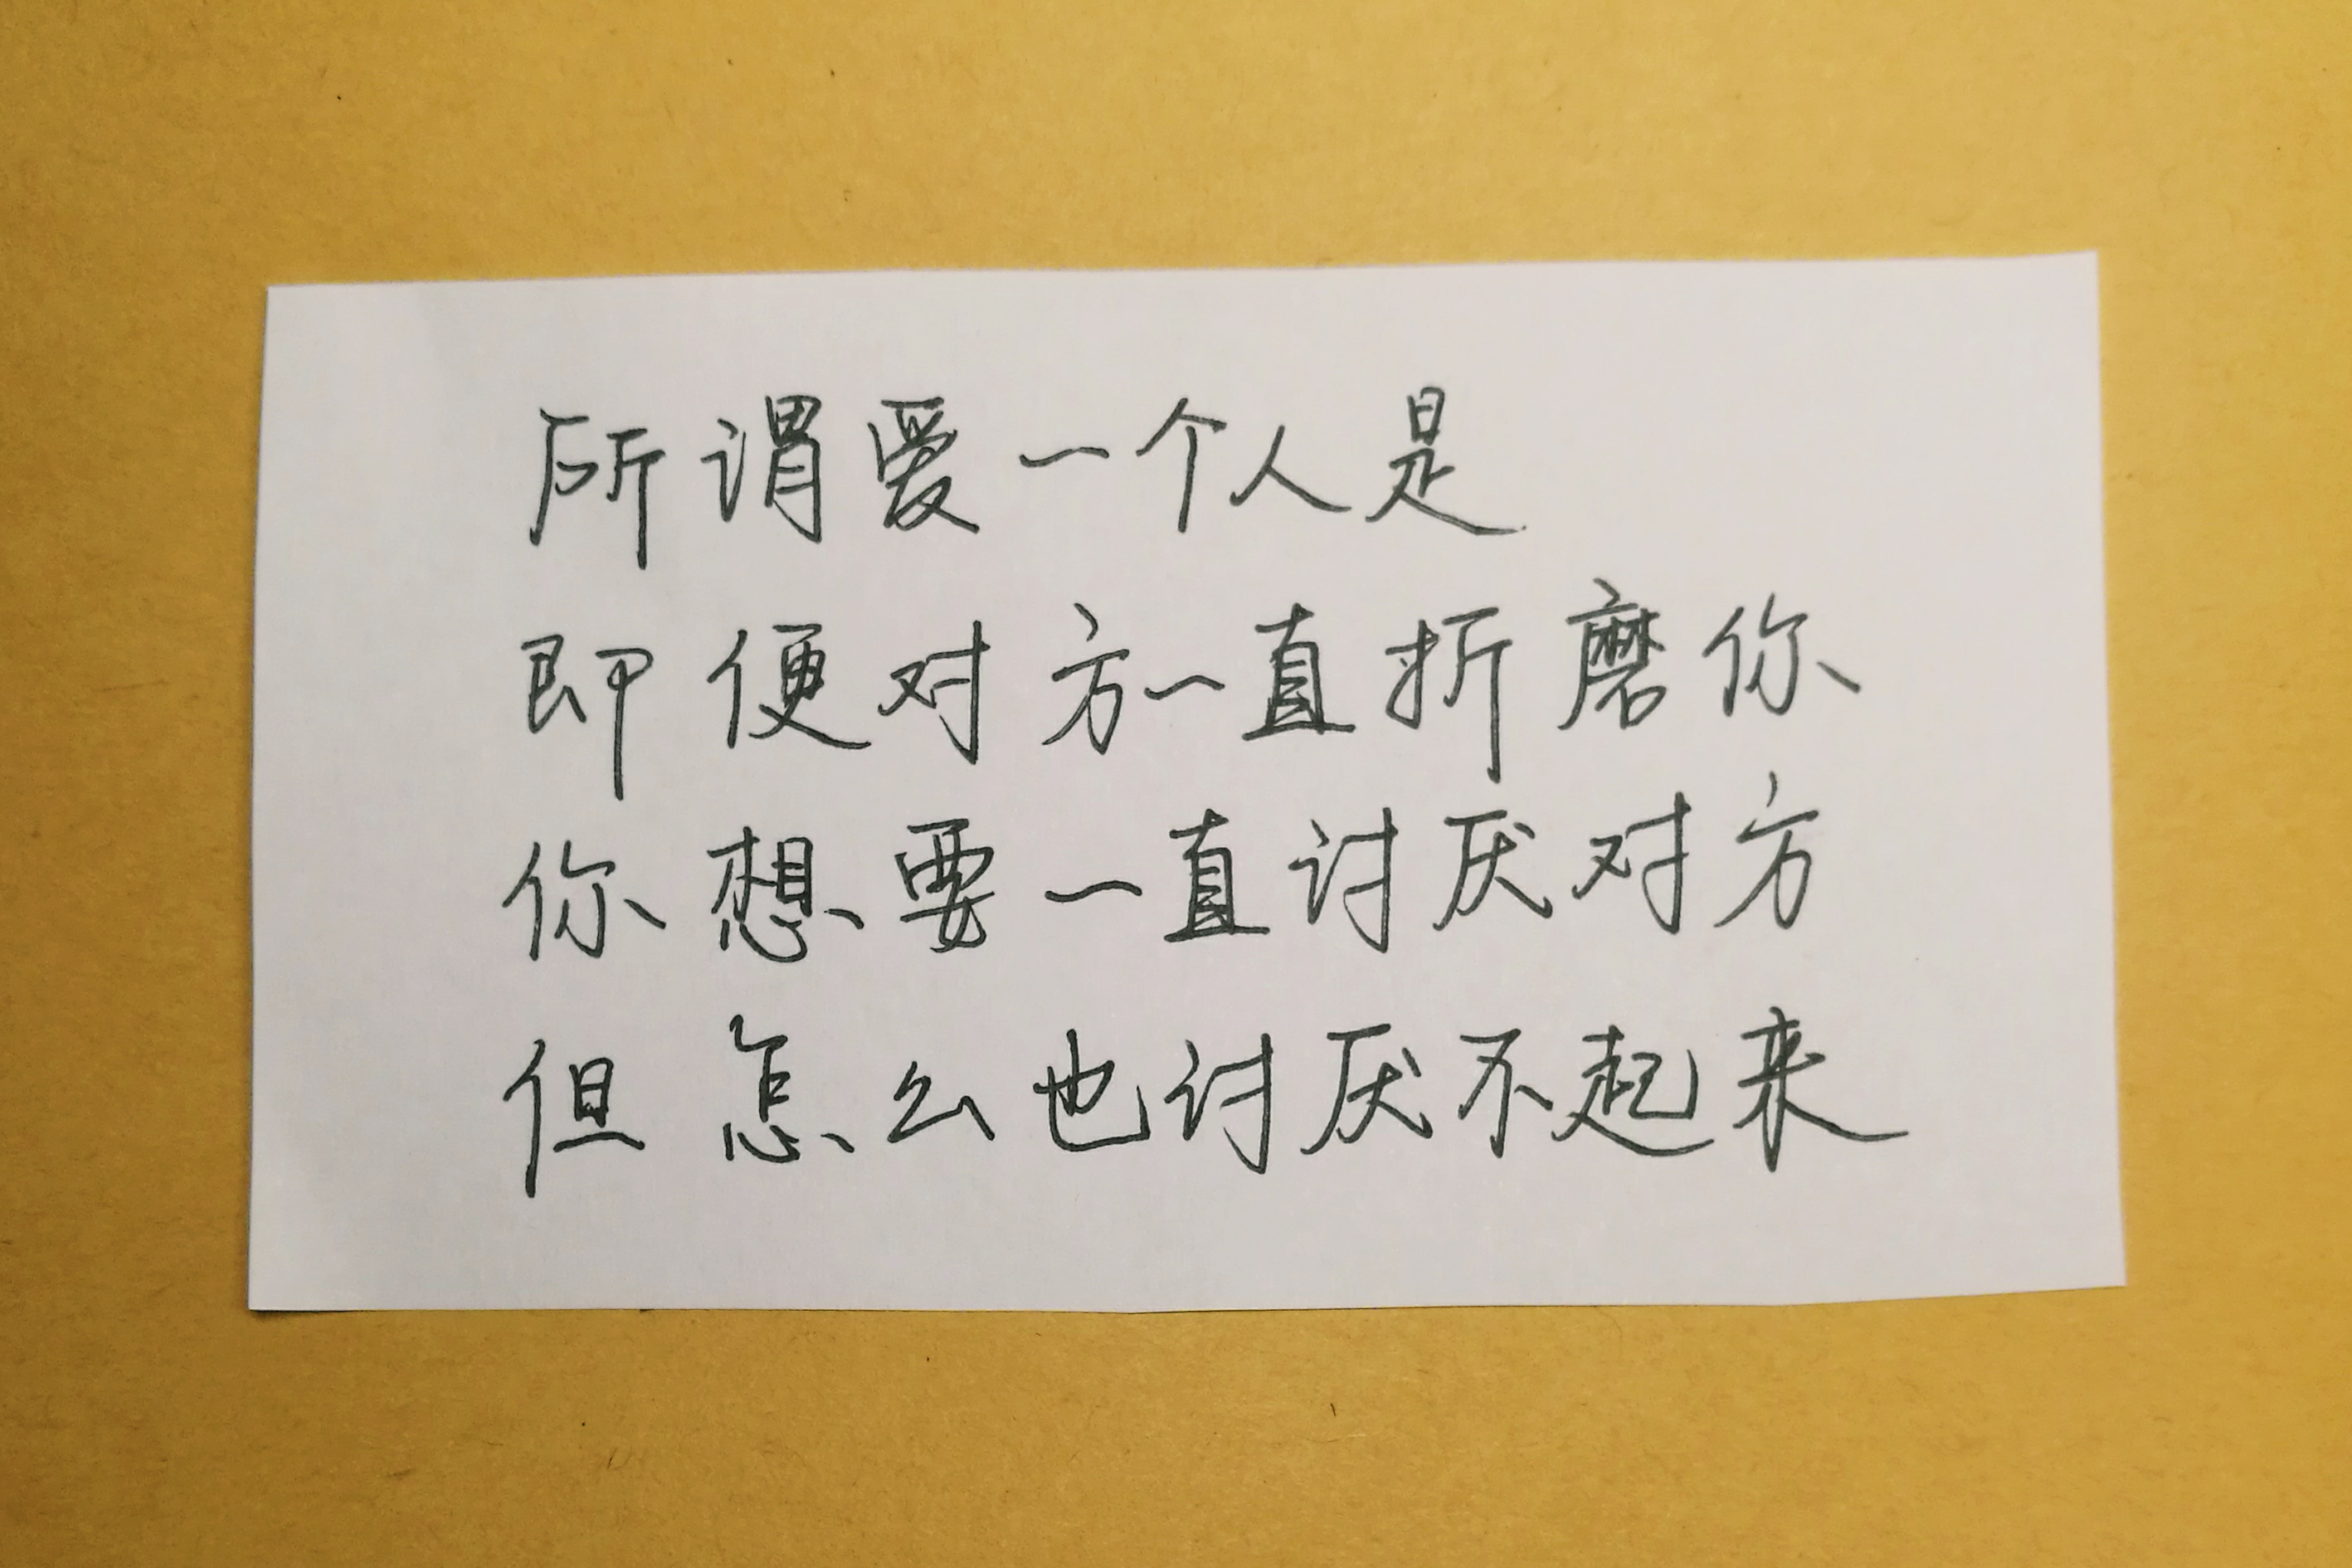 所谓爱一个人是
即便对方一直折磨你
你想要一直讨厌对方
但怎么也讨厌不起来